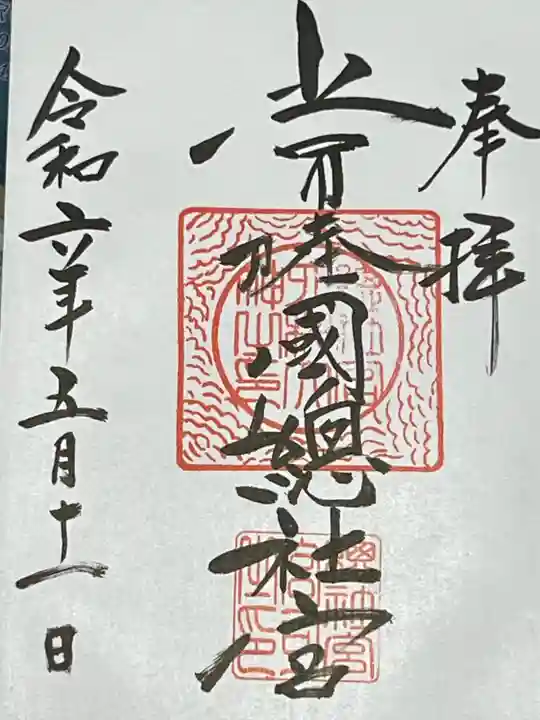 奉拝
常陸國總社宮
令和六年五月十一日